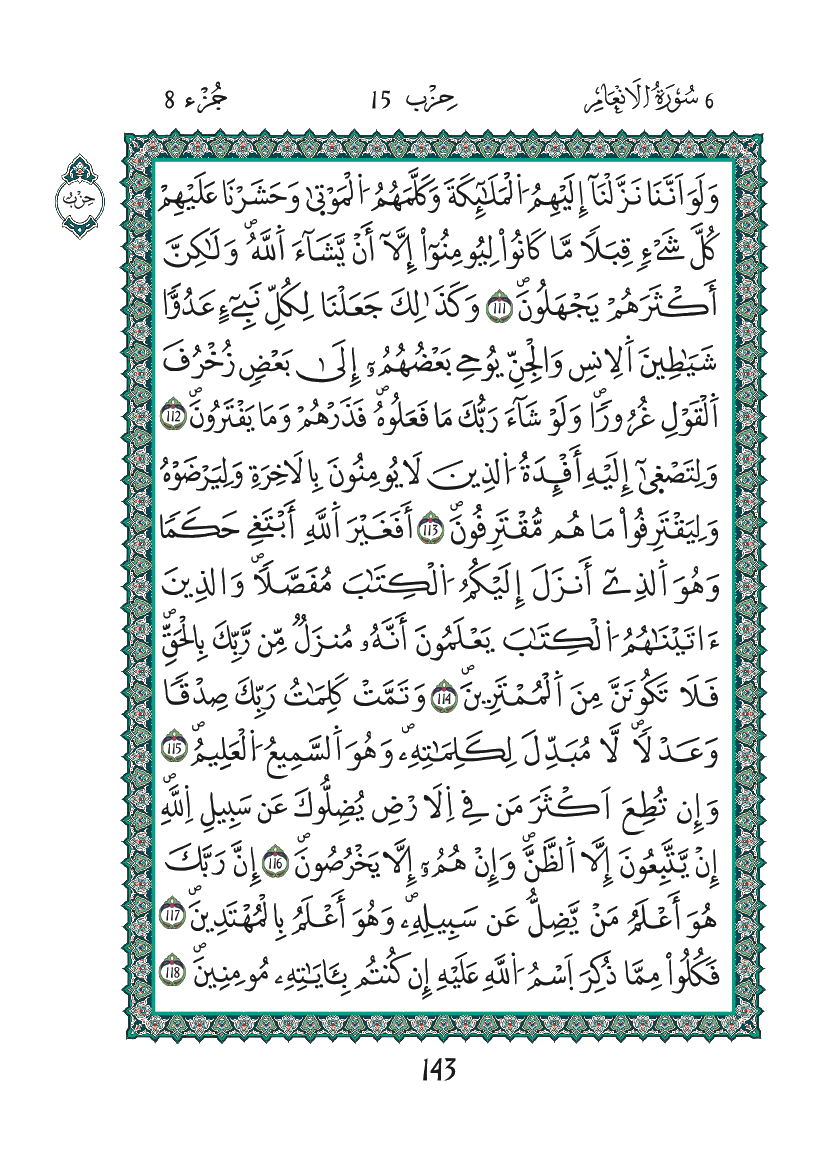 6 سُورَةُ الَانْعَامِ
حِزْب 15
جُزْء 8
حِزْب
وَلَوَ اَنَّنَا نَزَّلْنَآ إِلَيْهِمُ اُ۬لْمَلَٰٓئِكَةَ وَكَلَّمَهُمُ اُ۬لْمَوْت۪يٰ وَحَشَرْنَا عَلَيْهِمْ
كُلَّ شَےْءٖ قِبَلاٗ مَّا كَانُواْ لِيُومِنُوٓاْ إِلَّآ أَنْ يَّشَآءَ اَ۬للَّهُۖ وَلَٰكِنَّ
أَكْثَرَهُمْ يَجْهَلُونَۖ 111 وَكَذَٰلِكَ جَعَلْنَا لِكُلِّ نَبِےٓءٍ عَدُوّاٗ
شَيَٰطِينَ اَ۬لِانسِ وَالْجِنِّ يُوحِے بَعْضُهُمُۥٓ إِلَىٰ بَعْضٖ زُخْرُفَ
اَ۬لْقَوْلِ غُرُوراٗۖ وَلَوْ شَآءَ رَبُّكَ مَا فَعَلُوهُۖ فَذَرْهُمْ وَمَا يَفْتَرُونَۖ 112
وَلِتَصْغ۪يٰٓ إِلَيْهِ أَفْـِٕدَةُ اُ۬لذِينَ لَا يُومِنُونَ بِالَاخِرَةِ وَلِيَرْضَوْهُ
وَلِيَقْتَرِفُواْ مَا هُم مُّقْتَرِفُونَۖ 113 أَفَغَيْرَ اَ۬للَّهِ أَبْتَغِے حَكَماٗ
وَهُوَ اَ۬لذِےٓ أَنزَلَ إِلَيْكُمُ اُ۬لْكِتَٰبَ مُفَصَّلاٗۖ وَالذِينَ
ءَاتَيْنَٰهُمُ اُ۬لْكِتَٰبَ يَعْلَمُونَ أَنَّهُۥ مُنزَلٞ مِّن رَّبِّكَ بِالْحَقِّۖ
فَلَا تَكُونَنَّ مِنَ اَ۬لْمُمْتَرِينَۖ 114 وَتَمَّتْ كَلِمَٰتُ رَبِّكَ صِدْقاٗ
وَعَدْلاٗۖ لَّا مُبَدِّلَ لِكَلِمَٰتِهِۦۖ وَهُوَ اَ۬لسَّمِيعُ اُ۬لْعَلِيمُۖ 115
وَإِن تُطِعَ اَكْثَرَ مَن فِے اِ۬لَارْضِ يُضِلُّوكَ عَن سَبِيلِ اِ۬للَّهِۖ
إِنْ يَّتَّبِعُونَ إِلَّا اَ۬لظَّنَّۖ وَإِنْ هُمُۥٓ إِلَّا يَخْرُصُونَۖ 116 إِنَّ رَبَّكَ
هُوَ أَعْلَمُ مَنْ يَّضِلُّ عَن سَبِيلِهِۦۖ وَهُوَ أَعْلَمُ بِالْمُهْتَدِينَۖ 117
فَكُلُواْ مِمَّا ذُكِرَ اَ۪سْمُ اُ۬للَّهِ عَلَيْهِ إِن كُنتُم بِـَٔايَٰتِهِۦ مُومِنِينَۖ 118
143